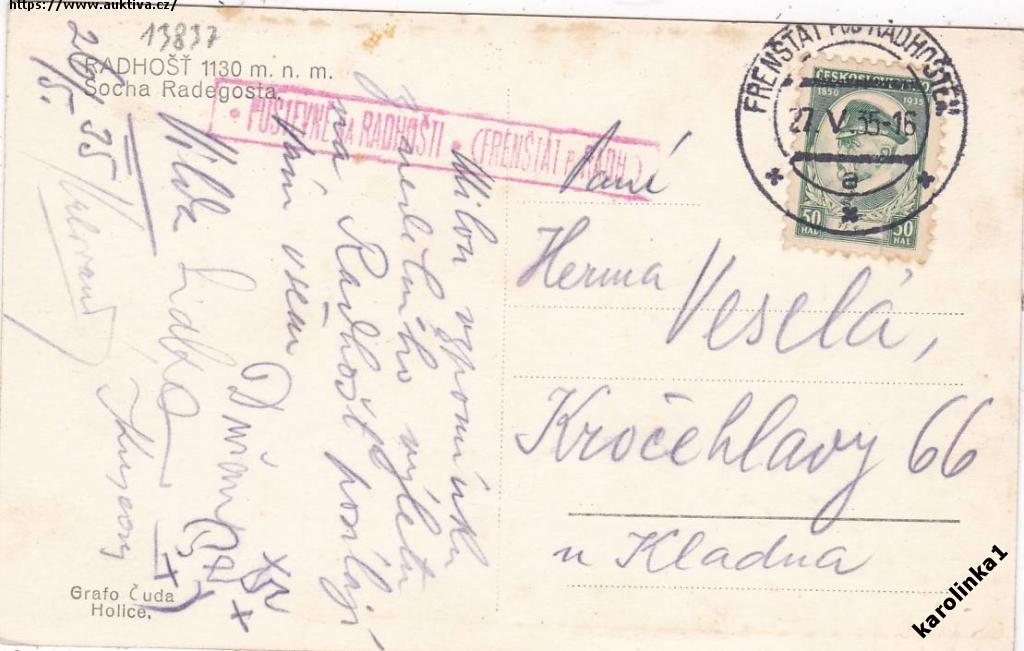 https://www.auktiva.cz/
13837
RADHOŠŤ 1130 m. n. m.
Socha Radegosta.
26/5. 35
Milou vzpomínku
z nedělního výletu
na Radhošť posílají
Vám všem
Míla
Lidka
PUSTEVNĚ na RADHOŠTI • (FRENŠTÁT p. RADH.)
FRENŠTÁT POD RADHOŠTĚM
27. V. 35-16
a
ČESKOSLOVENSKO
1850 1935
50 HAL 50 HAL
Paní
Herma Veselá,
Kročehlavy 66
u Kladna
Grafo Čuda
Holice.
karolinka1